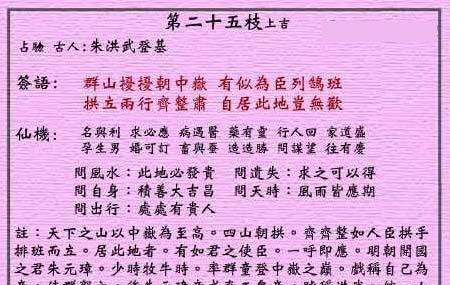 第二十五枝上吉
占驗 古人:朱洪武登基
簽語: 群山擾擾朝中嶽 有似為臣列鵠班
拱立兩行齊整肅 自居此地豈無歡
仙機: 名與利 求必應 病遇醫 藥有靈 行人回 家道盛
孕生男 婚可訂 畜與蚕 造造勝 問謀望 往有慶
問風水:此地必發貴 問遺失:求之可以得
問自身:積善大吉昌 問天時:風雨皆應期
問出行:處處有貴人
註:天下之山以中嶽為至高。四山朝拱。齊齊整如人臣拱手
排班而立。居此地者。有如君之使臣。一呼即應。明朝開國
之君朱元璋。少時牧牛時。率群童登中嶽之巔。戲稱自己為